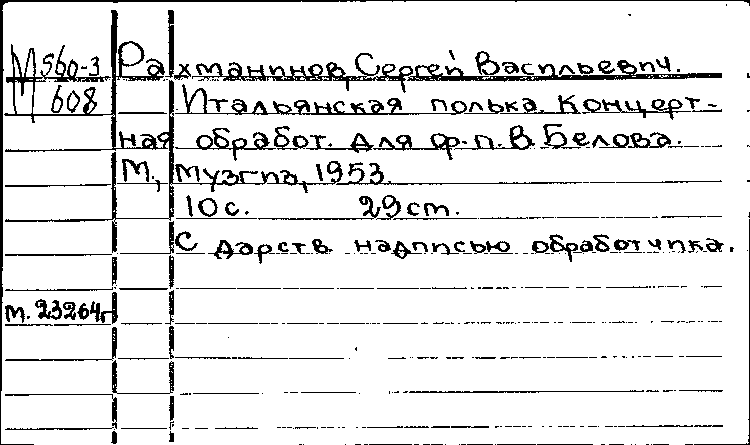 М560-3
608
Рахманинов, Сергей Васильевич.
Итальянская полька. Концерт-
ная обработ. для ф.п. В. Белова.
М., Музгиз, 1953.
10 с. 29 cm.
С дарств. надписью обработчика.
м. 23264г